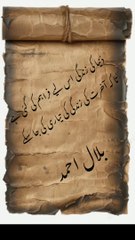 دنیا کی زندگی اس لیے فراہم کی گئی ہے
تاکہ آخرت کی زندگی کی تیاری کی جا سکے
بلال احمد